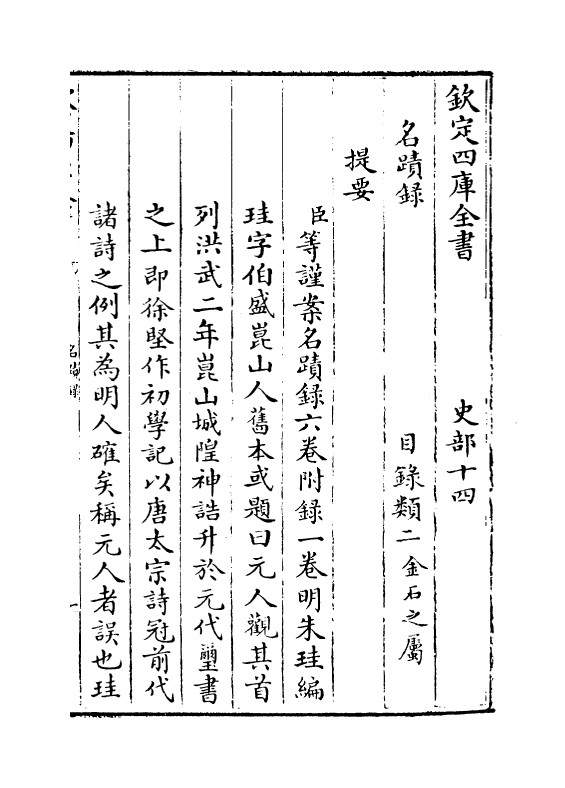 欽定四庫全書　史部十四
名蹟錄　目錄類二金石之屬
提要
臣等謹案名蹟錄六卷附錄一卷明朱珪編
珪字伯盛崑山人舊本或題曰元人觀其首
列洪武二年崑山城隍神誥升於元代璽書
之上即徐堅作初學記以唐太宗詩冠前代
諸詩之例其為明人確矣稱元人者誤也珪
名蹟錄
一